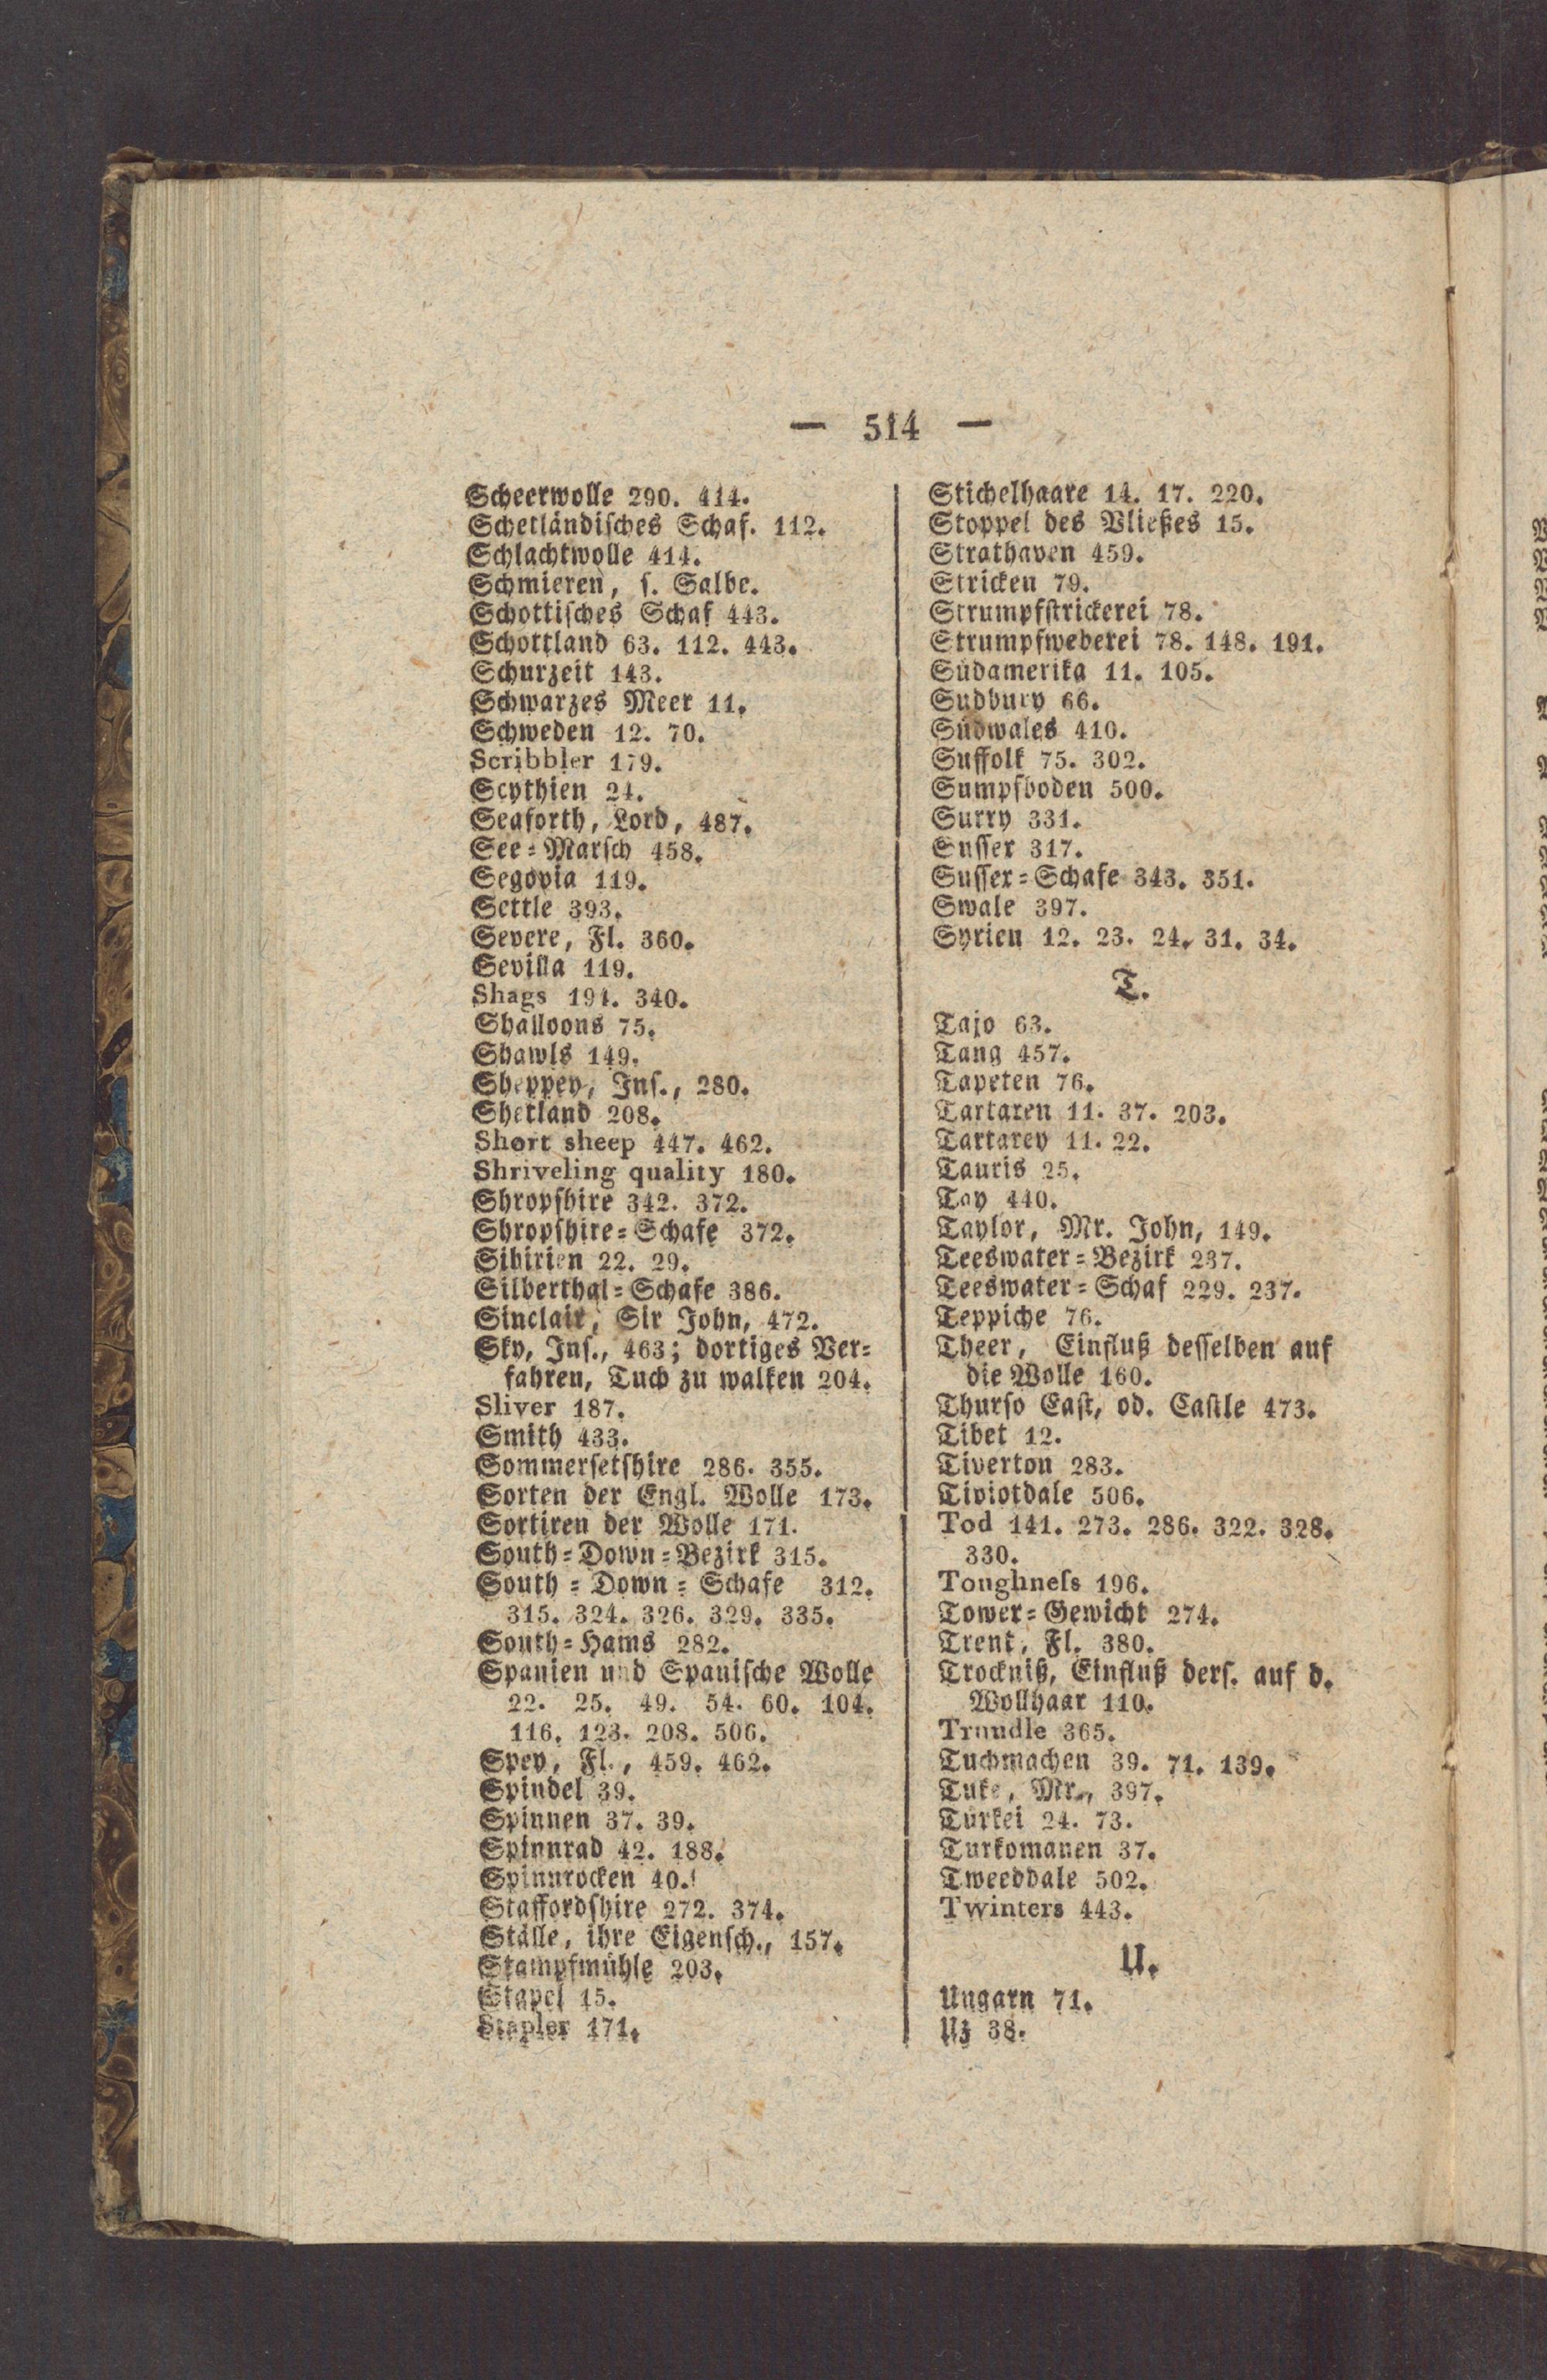 — 514 —
Scheerwolle 290. 414.
Schetländiſches Schaf. 112.
Schlachtwolle 414.
Schmieren, ſ. Salbe.
Schottiſches Schaf 443.
Schottland 63. 112. 443.
Schurzeit 143.
Schwarzes Meer 11.
Schweden 12. 70.
Scribbler 179.
Scythien 24.
Seaforth, Lord, 487.
See-Marſch 458.
Segovia 119.
Settle 393.
Severe, Fl. 360.
Sevilla 119.
Shags 191. 340.
Shalloons 75.
Shawls 149.
Sheppey, Inſ., 280.
Shetland 208.
Short sheep 447. 462.
Shriveling quality 180.
Shropſhire 342. 372.
Shropſhire-Schafe 372.
Sibirien 22. 29.
Silberthal-Schafe 386.
Sinclair, Sir John, 472.
Sky, Inſ., 463; dortiges Ver-
fahren, Tuch zu walken 204.
Sliver 187.
Smith 433.
Sommerſetſhire 286. 355.
Sorten der Engl. Wolle 173.
Sortiren der Wolle 171.
South-Down-Bezirk 315.
South-Down-Schafe 312.
315. 324. 326. 329. 335.
South-Hams 282.
Spanien und Spaniſche Wolle
22. 25. 49. 54. 60. 104.
116. 123. 208. 506.
Spey, Fl., 459. 462.
Spindel 39.
Spinnen 37. 39.
Spinnrad 42. 188.
Spinnrocken 40.
Staffordſhire 272. 374.
Ställe, ihre Eigenſch., 157.
Stampfmühle 203.
Stapel 15.
Stapler 171.
Stichelhaare 14. 17. 220.
Stoppel des Vließes 15.
Strathaven 459.
Stricken 79.
Strumpfſtrickerei 78.
Strumpfweberei 78. 148. 191.
Südamerika 11. 105.
Sudbury 66.
Südwales 410.
Suffolk 75. 302.
Sumpfboden 500.
Surry 331.
Suſſex 317.
Suſſex-Schafe 343. 351.
Swale 397.
Syrien 12. 23. 24. 31. 34.
T.
Tajo 63.
Tang 457.
Tapeten 76.
Tartaren 11. 37. 203.
Tartarey 11. 22.
Tauris 25.
Tay 440.
Taylor, Mr. John, 149.
Teeswater-Bezirk 237.
Teeswater-Schaf 229. 237.
Teppiche 76.
Theer, Einfluß deſſelben auf
die Wolle 160.
Thurſo Eaſt, od. Caſtle 473.
Tibet 12.
Tiverton 283.
Tiviotdale 506.
Tod 141. 273. 286. 322. 328.
330.
Toughneſs 196.
Tower-Gewicht 274.
Trent, Fl. 380.
Trockniß, Einfluß derſ. auf d.
Wollhaar 110.
Trundle 365.
Tuchmachen 39. 71. 139.
Tuke, Mr., 397.
Türkei 24. 73.
Turkomanen 37.
Tweeddale 502.
Twinters 443.
U.
Ungarn 71.
Uz 38.